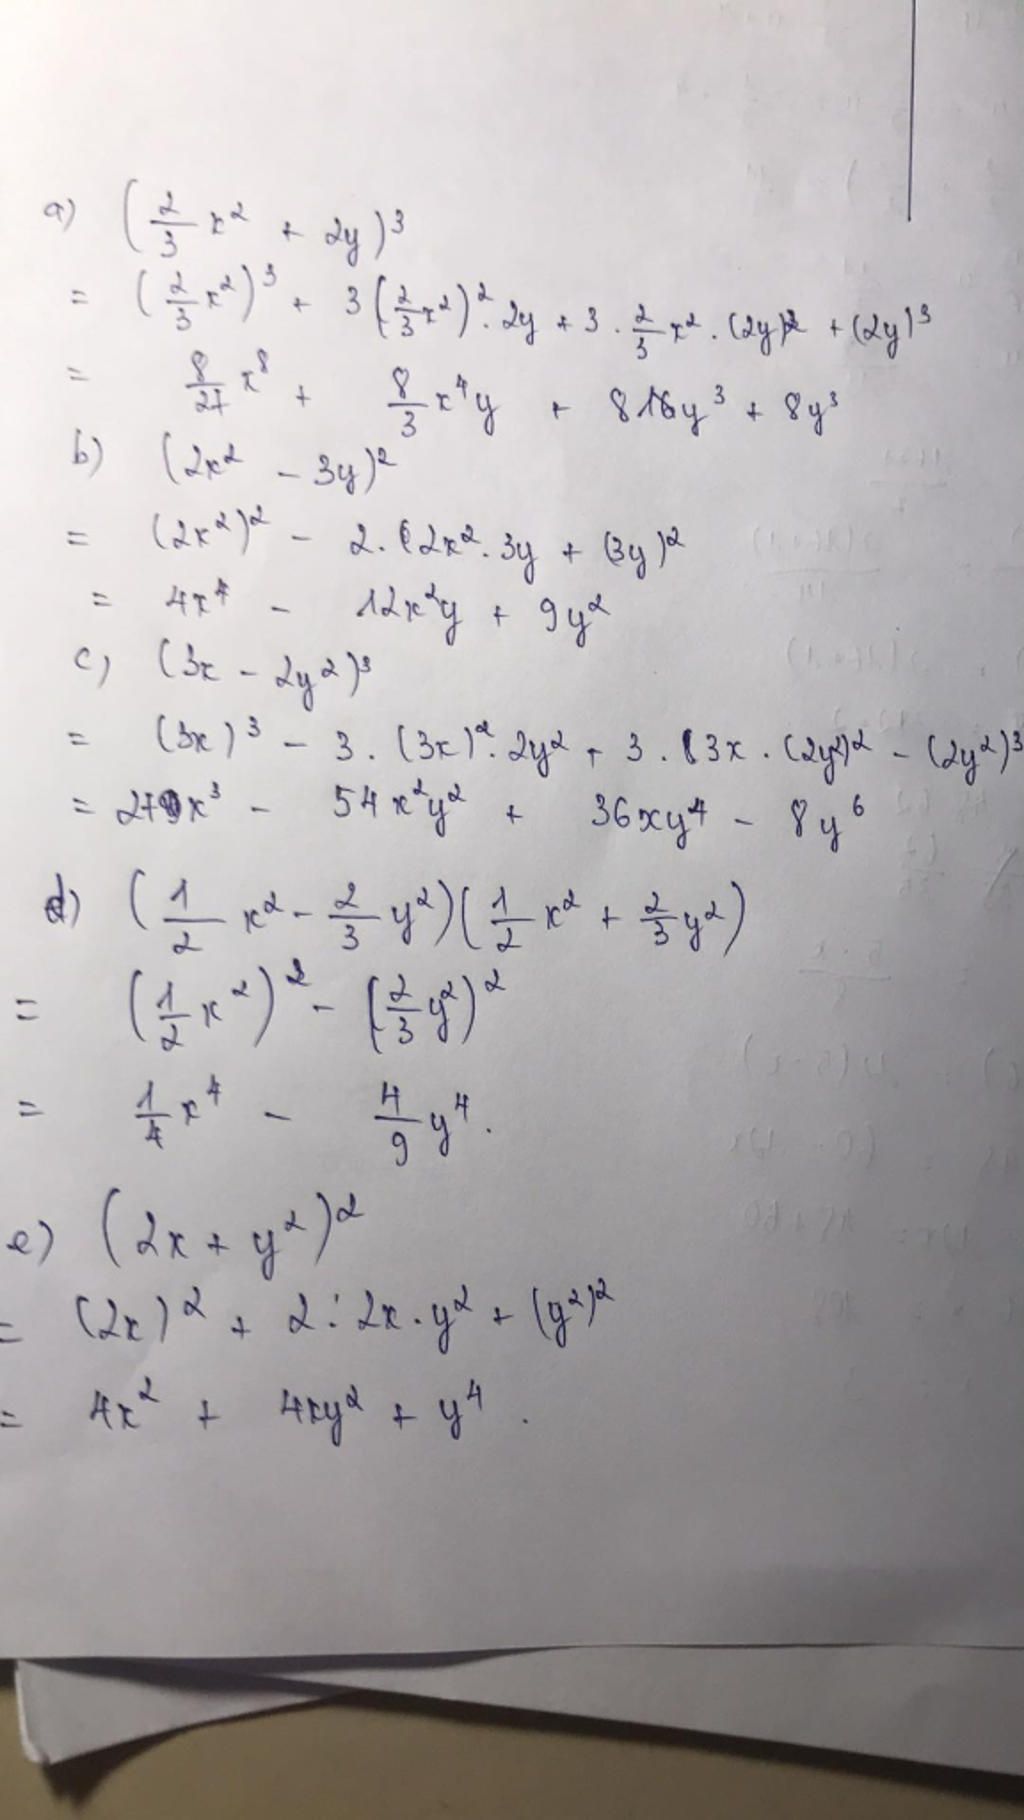 a) (2/3 x² + 2y)³
= (2/3 x²)³ + 3(2/3 x²)² · 2y + 3 · 2/3 x² · (2y)² + (2y)³
= 8/27 x⁸ + 8/3 x⁴y + 816y³ + 8y³
b) (2x² - 3y)²
= (2x²)² - 2 · (2x² · 3y + (3y)²
= 4x⁴ - 12x²y + 9y²
c) (3x - 2y²)³
= (3x)³ - 3 · (3x)² · 2y² + 3 · (3x · (2y²)² - (2y²)³
= 27x³ - 54x²y² + 36xy⁴ - 8y⁶
d) (1/2 x² - 2/3 y²)(1/2 x² + 2/3 y²)
= (1/2 x²)² - (2/3 y²)²
= 1/4 x⁴ - 4/9 y⁴.
e) (2x + y²)²
= (2x)² + 2 · 2x · y² + (y²)²
= 4x² + 4xy² + y⁴.